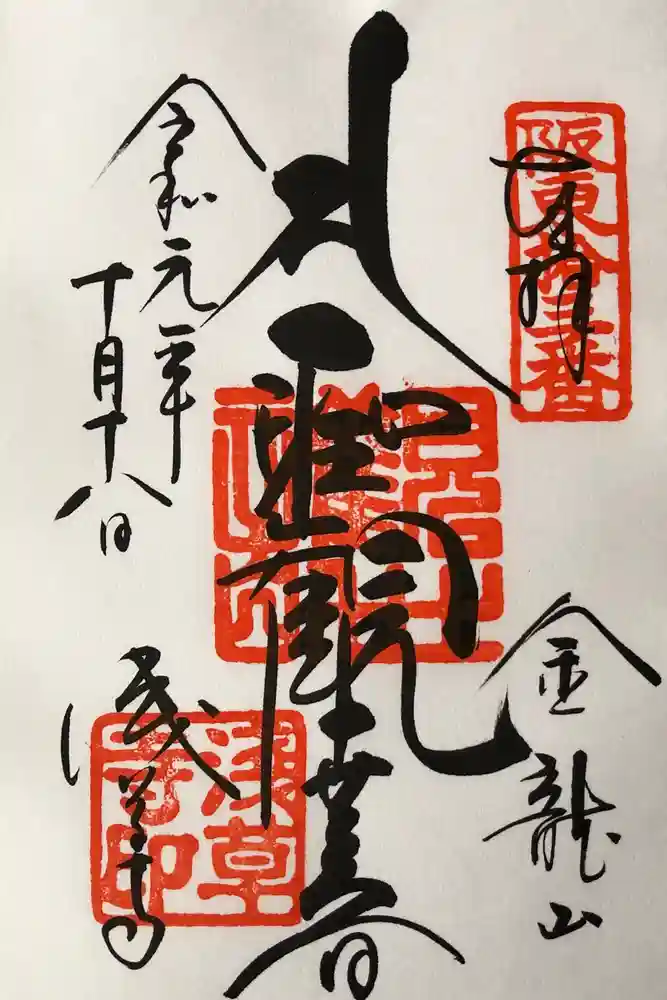 奉拝
阪東拾三番
金龍山
聖観世音
令和元年
十月十八日
浅草寺
浅草
寺印